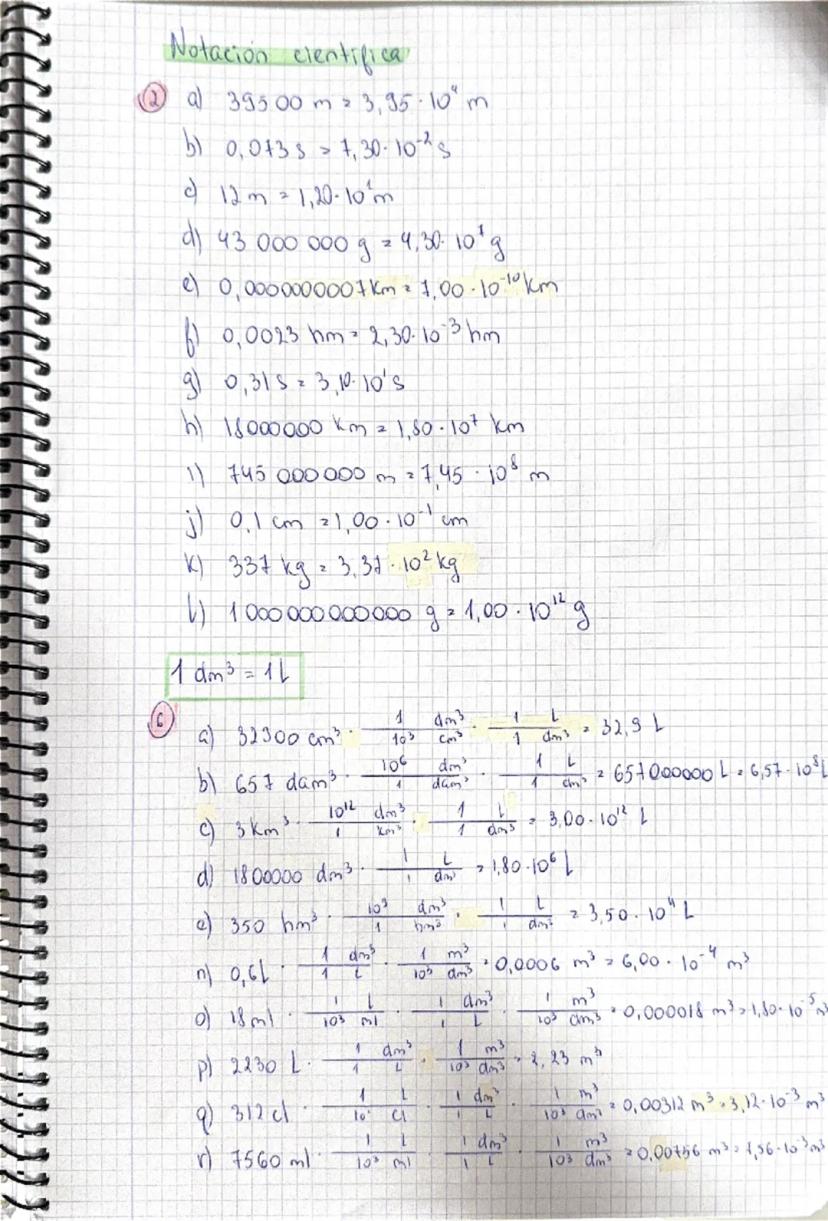 Notación científica
2 a) 39500 m = 3,95 · 10⁴ m
b) 0,073 s = 7,30 · 10⁻² s
c) 12 m = 1,20 · 10¹ m
d) 43 000 000 g = 4,30 · 10⁷ g
e) 0,0000000007 km = 7,00 · 10⁻¹⁰ km
f) 0,0023 hm = 2,30 · 10⁻³ hm
g) 0,31 s = 3,10 · 10¹ s
h) 18000000 km = 1,80 · 10⁷ km
i) 745 000 000 m = 7,45 · 10⁸ m
j) 0,1 cm = 1,00 · 10⁻¹ cm
k) 337 kg = 3,37 · 10² kg
l) 1 000 000 000 000 g = 1,00 · 10¹² g
1 dm³ = 1 L
6 a) 32300 cm³ · 1/10³ dm³/cm³ · 1/1 L/dm³ = 32,3 L
b) 657 dam³ · 10⁶/1 dm³/dam³ · 1/1 L/dm³ = 657000000 L = 6,57 · 10⁸ L
c) 3 km³ · 10¹²/1 dm³/km³ · 1/1 L/dm³ = 3,00 · 10¹² L
d) 1800000 dm³ · 1/1 L/dm³ = 1,80 · 10⁶ L
e) 350 hm³ · 10⁹/1 dm³/hm³ · 1/1 L/dm³ = 3,50 · 10¹¹ L
n) 0,6 L · 1/1 dm³/L · 1/10³ m³/dm³ = 0,0006 m³ = 6,00 · 10⁻⁴ m³
o) 18 ml · 1/10³ L/ml · 1/1 dm³/L · 1/10³ m³/dm³ = 0,000018 m³ = 1,80 · 10⁻⁵ m³
p) 2230 L · 1/1 dm³/L · 1/10³ m³/dm³ = 2,23 m³
q) 312 cl · 1/10² L/cl · 1/1 dm³/L · 1/10³ m³/dm³ = 0,00312 m³ = 3,12 · 10⁻³ m³
r) 7560 ml · 1/10³ L/ml · 1/1 dm³/L · 1/10³ m³/dm³ = 0,00756 m³ = 7,56 · 10⁻³ m³